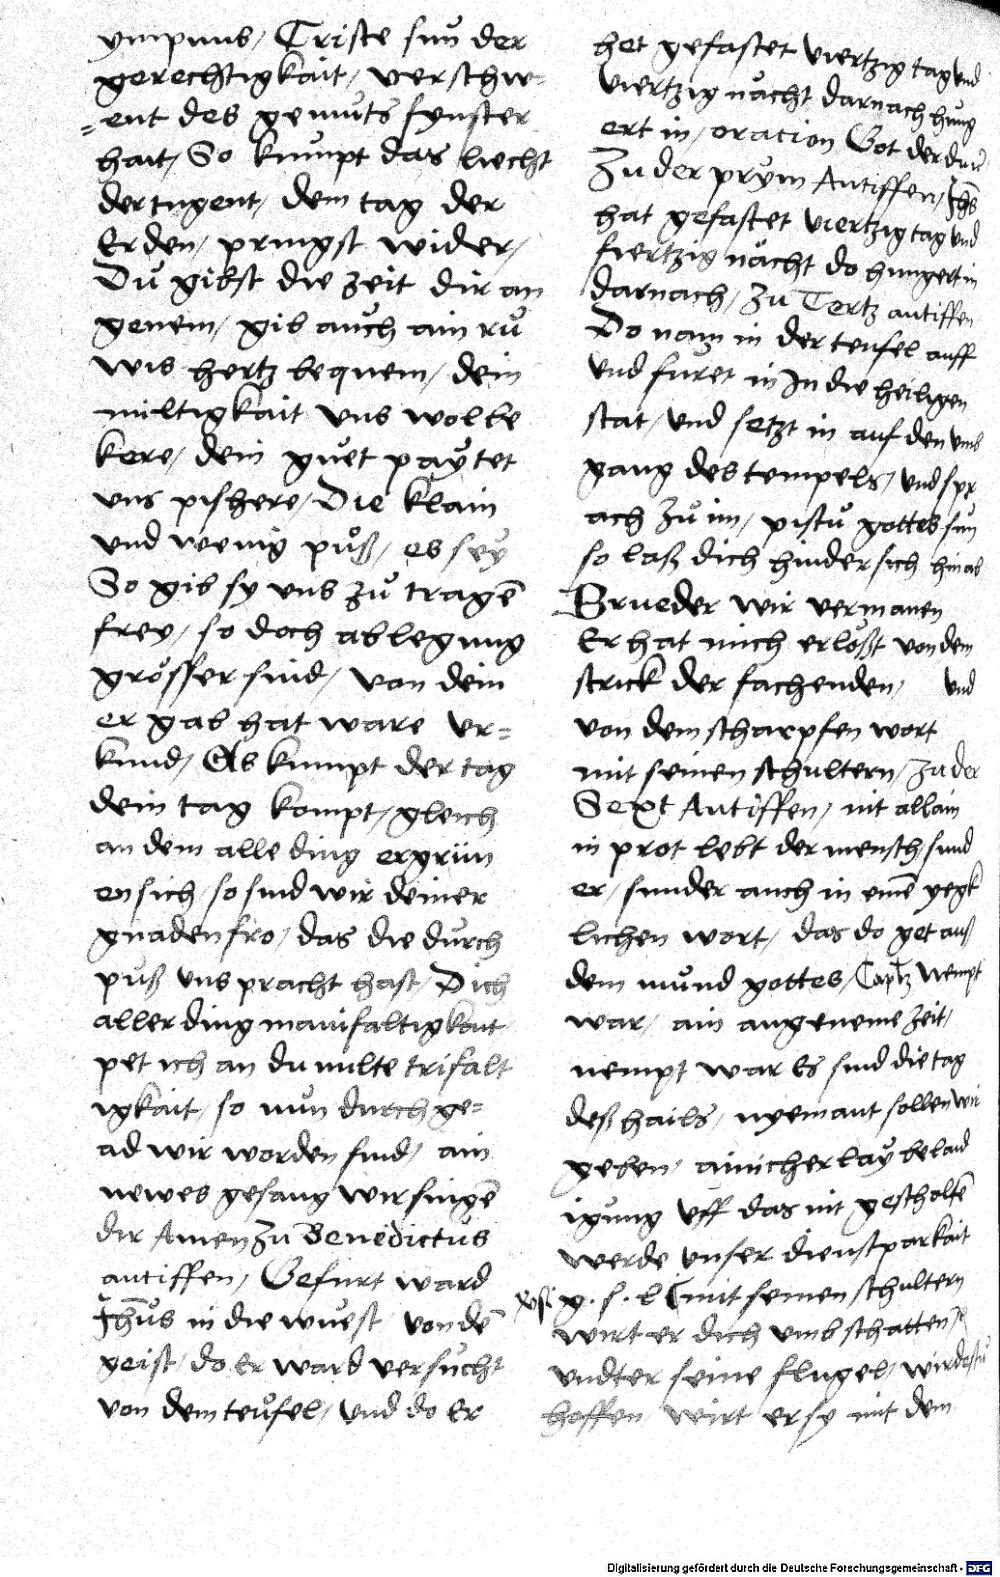 ympnus / Criste sun der
gerechtigkait / verschw-
=ent des gemuts fynster
hait / So kumpt das liecht
der tugent / dem tag der
Erden / pringst wider /
Du gibst die zeit dir an
genem / gib auch ain rü
wis hertz bequem / dein
miltigkait uns wol be
kere / dein guet paytet
uns pishere / Die klain
und wenig půß / es sey
So gib sy uns zů tragē
frey / so doch ablegung
grösser sind / von dein
er gab hat ware ur=
kund / Es kumpt der tag
dein tag kompt / gleich
an dem alle ding ergrün
en sich / so sind wir deiner
gnaden fro / das die durch
puß uns pracht hast / Dich
aller ding manifaltigkait
pet ich an du milte trifalt
igkait / so nun durch ge=
ad wir worden sind / ain
newes gesang wir singē
dir Amen Zu Benedictus
antiffen / Gefurt ward
Jhūs in die wuest / von dē
geist / do Er ward versucht
von dem teufel / und do Er
het gefastet viertzig tag und
viertzig nächt darnach hung
ert in / oration Got der du
Zu der prym Antiffen / Jhs
hat gefastet viertzig tag und
fiertzig nächt do hungert in
darnach / Zu Tertz antiffen
Do nam in der teufel auff
und furet in In die heiligen
stat / und setzt in auf den umb
gang des tempels / und spr
ach zů im / pistu gottes sun
so laß dich hinder sich hinab
Brueder wir vermanen
Er hat mich erlößt von dem
strick der fachenden / und
von dem scharpfen wort
mit seinen schultern / Zu der
Sext Antiffen / nit allain
in prot lebt der mensch sund
er / sunder auch in einē yegk
lichen wort / das do get auß
dem mund gottes / Captz Nempt
war / ain angeneme zeit /
nempt war Es sind die tag
deß hails / nyemant sollen wir
geben / ainicherlay belaid
igung uff das nit gescholtē
werde unser dienstparkait
g. s. l mit seinen schultern
wirt er dich umbschatten /
undter seine flugel / wirdestu
hoffen / wirt er sy mit dem
Digitalisierung gefördert durch die Deutsche Forschungsgemeinschaft - DFG